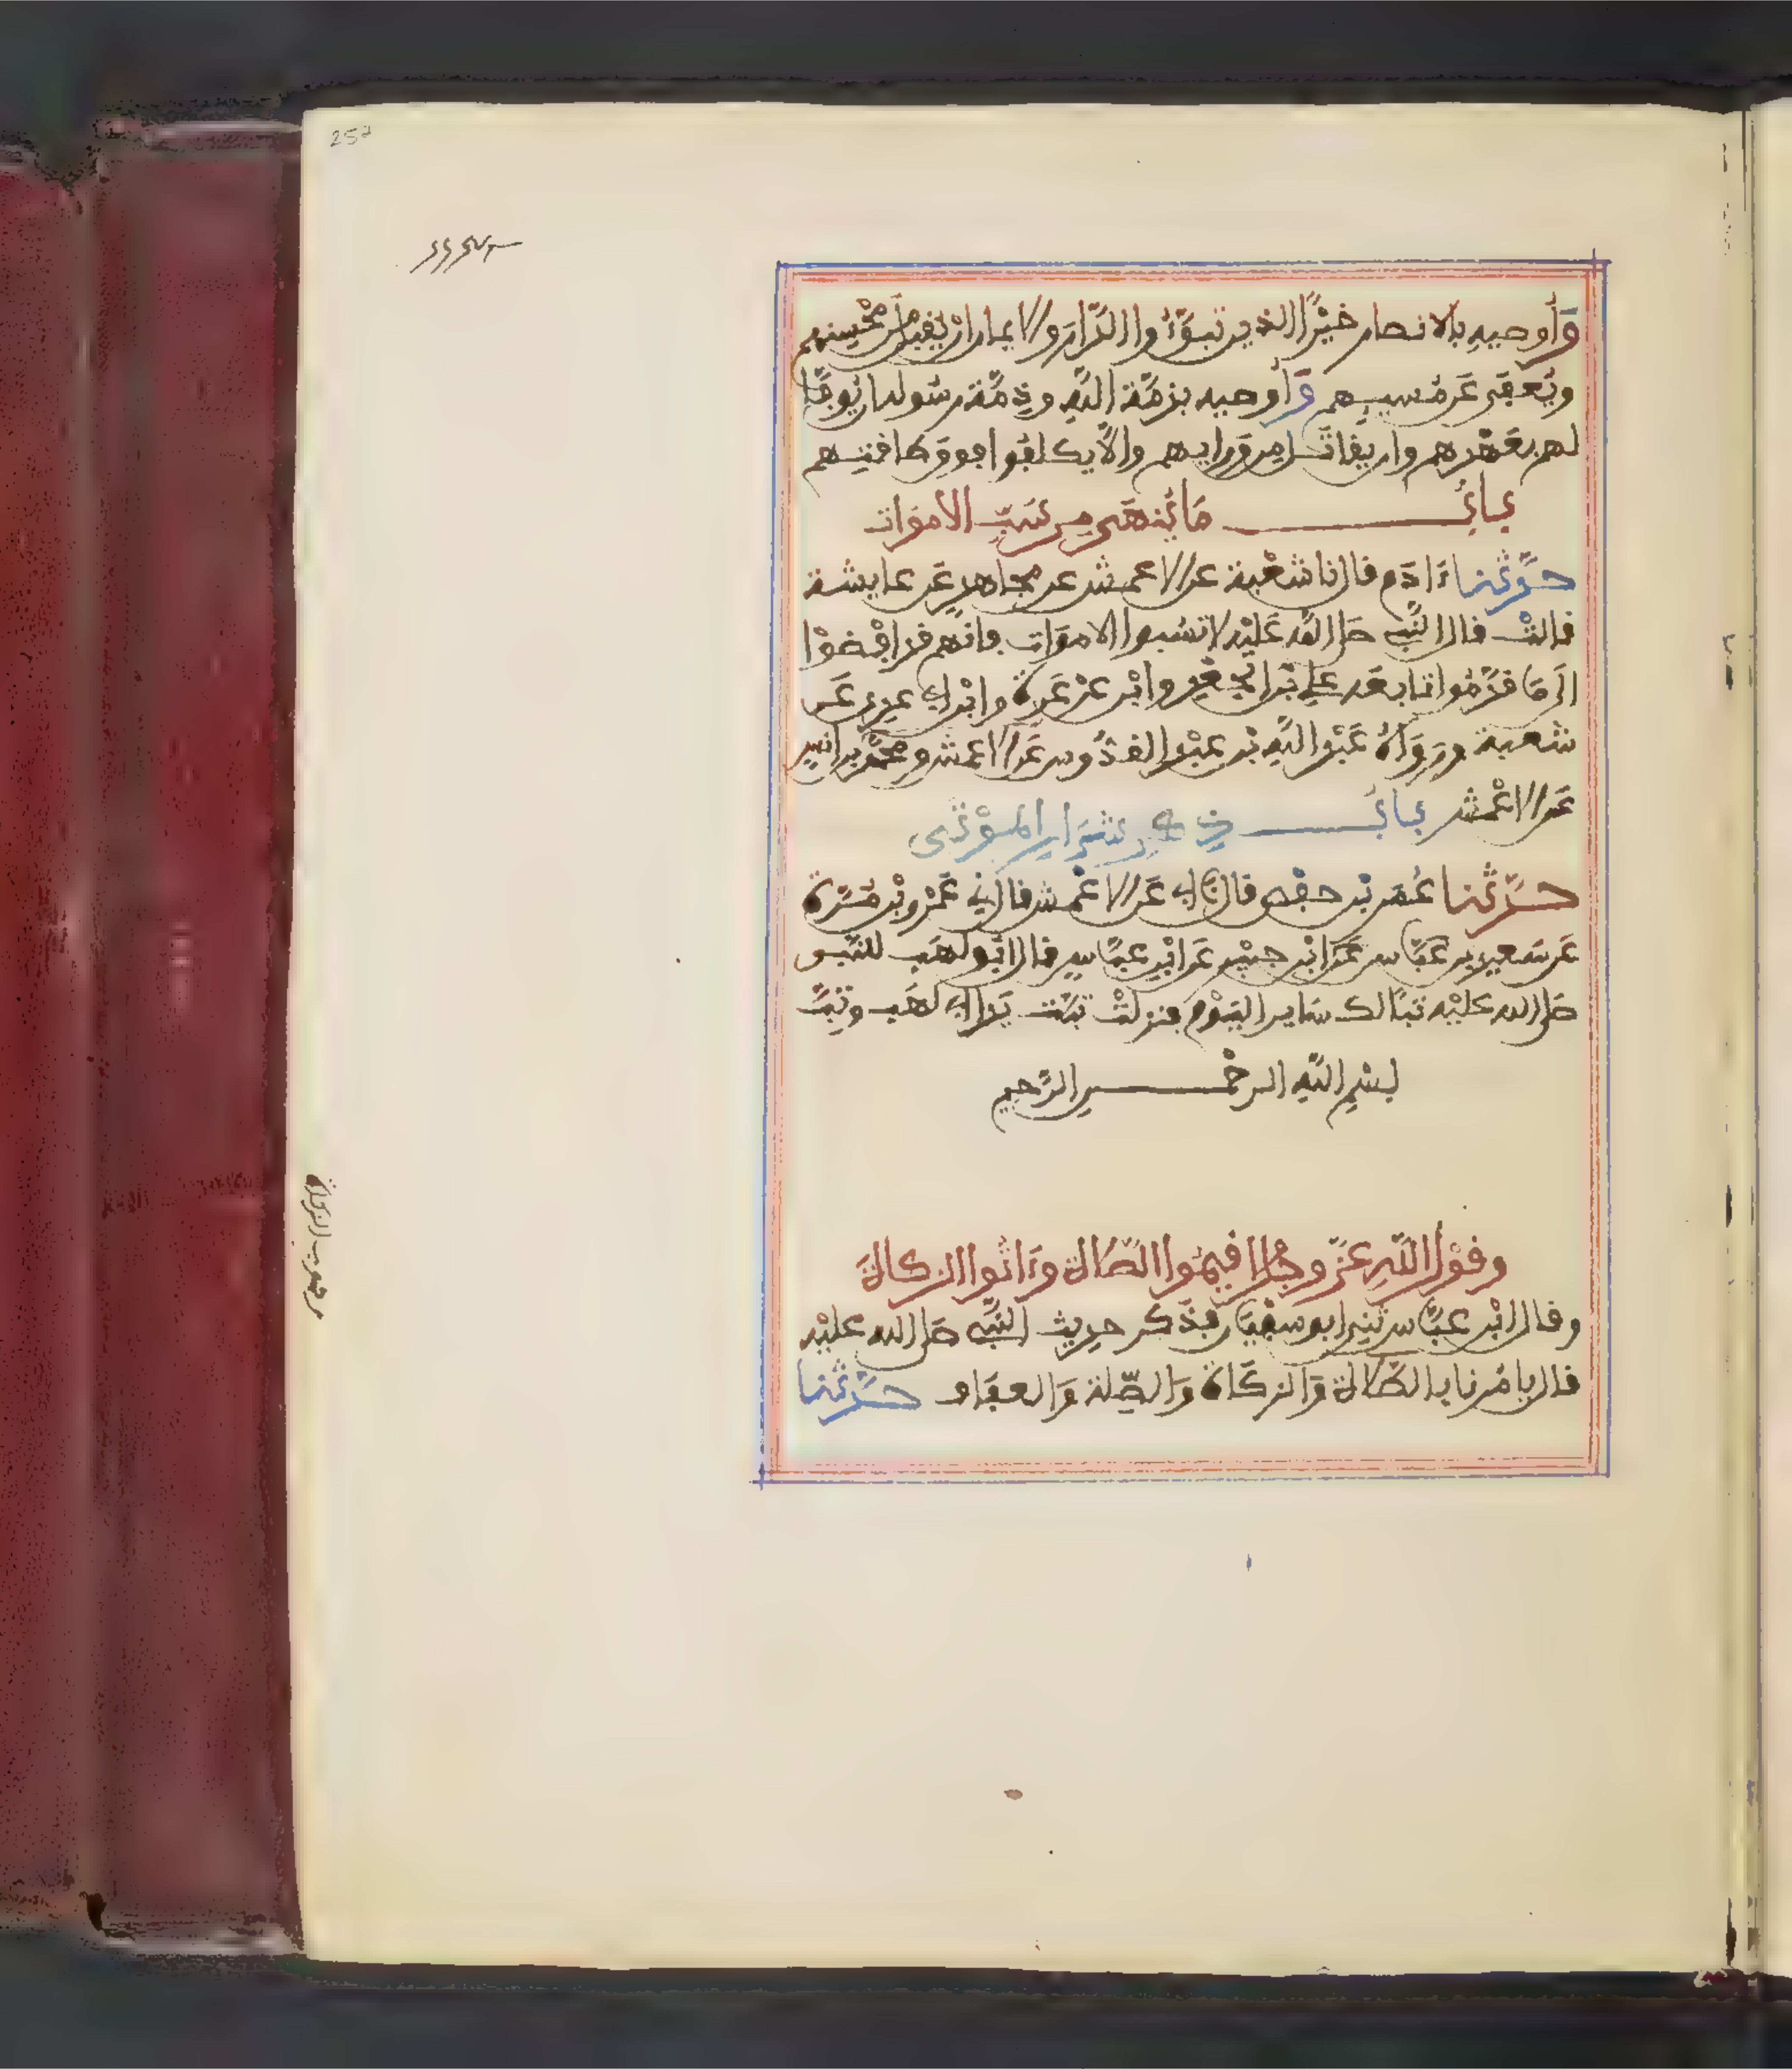 257
وَأُوصِيهِ بالانصار خَيْرًا الذين تبوَّءُوا الدَّارَ والايمان ان يُقبل من مُحْسِنِهِم
ويُعفَى عَن مُسِيـِٔهم وَأُوصِيه بذمَّة اللَّهِ وذِمَّة رسُوله ان يُوفَّا
لهم بعَهْدهم وان يقاتَل مِن وَرايهم والَّا يكلفُوا فوق طاقتِهم
بَابُ مَا يُنهَى مِن سَبِّ الاموَات
حدَّثنا ءَادَم قال نا شُعْبة عن الاعمش عن مجاهدٍ عَن عايشة
قالتْ قال النَّبي صَلى اللهُ عَلَيْه لا تسُبوا الاموَات فإنهم قد افْضَوْا
الى مَا قدَّمُوا تابعَه علي بْن الجَعْدِ وابْن عَرْعَرة وابن ابي عدي عَن
شعبة ورَوَاهُ عَبْد اللَّهِ بْن عبْد القدُّوس عَن الاعمش ومحمَّد بن انس
عَن الاعْمش بَابُ ذِكْرِ شِرَارِ المَوْتَى
حدَّثنا عُمَر بْن حفْص قال نا ابي عَن الاعْمش قال ني عَمْرو بْن مُرَّة
عَن سَعيد بن عَبَّاس عَن ابْن جبَيْر عَن ابْن عبَّاسٍ قال ابُو لهَب للنَّبي
صَلى الله عليْه تبًّا لك سَاير اليَوْم فنزلتْ تبَّت يَدا ابي لهَب وتبَّ
بسْمِ اللَّهِ الرحْمـــن الرَّحيمِ
وقوْل اللَّهِ عَزَّ وجَلَّ اقيمُوا الصَّلاة وءَاتُوا الزكاةَ
وقال ابْن عبَّاس ثني ابو سفْيَان فذَكر حدِيث النَّبي صَلى الله عليْه
قال يامُرنا بالصَّلاة وَالزكَاة وَالصِّلة وَالعفَاف حدَّثنا